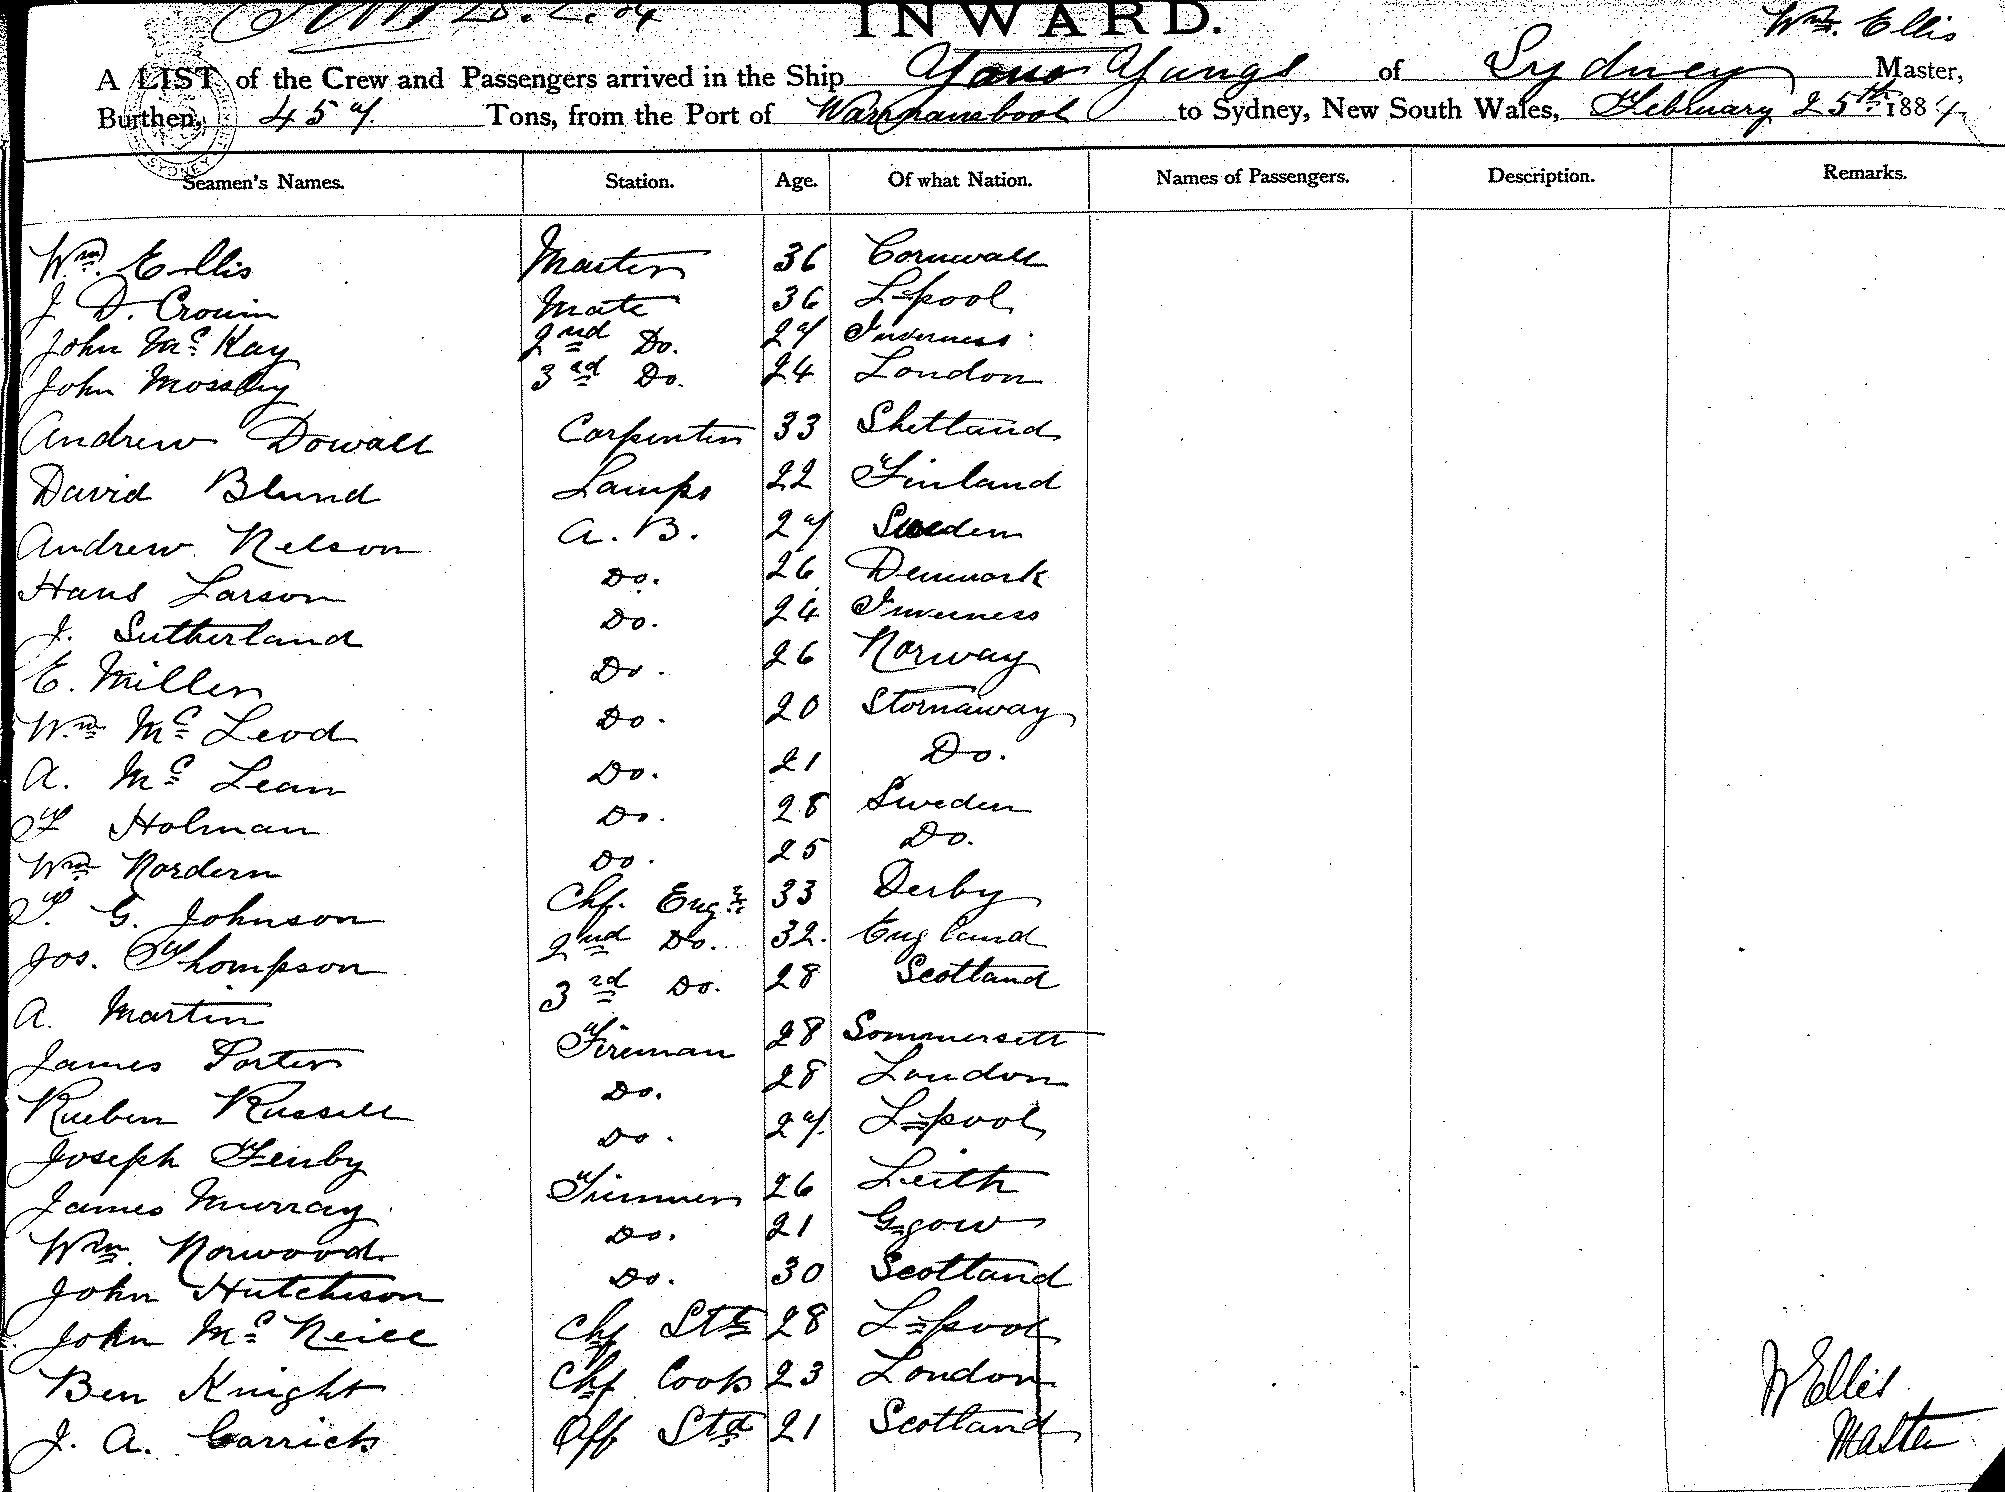 INWARD.
Wm. Ellis
A LIST of the Crew and Passengers arrived in the Ship You Yangs of Sydney Master,
Burthen, 457 Tons, from the Port of Warrnambool to Sydney, New South Wales, February 25th 1884
Seamen's Names. Station. Age. Of what Nation. Names of Passengers. Description. Remarks.
Wm. Ellis Master 36 Cornwall
J. D. Cronin Mate 36 L-pool
John Mc Kay 2nd Do. 27 Inverness
John Mossby 3rd Do. 24 London
Andrew Dowall Carpenter 33 Shetland
David Blund Lamps 22 Finland
Andrew Nelson A. B. 27 Sweden
Hans Larson Do. 26 Denmark
J. Sutherland Do. 24 Inverness
E. Miller Do. 26 Norway
Wm Mc Leod Do. 20 Stornaway
A. Mc Lean Do. 21 Do.
F Holman Do. 28 Sweden
Wm Nordern Do. 25 Do.
T. G. Johnson Chf. Engr 33 Derby
Jos. Thompson 2nd Do. 32. England
A. Martin 3rd Do. 28 Scotland
James Porter Fireman 28 Sommersett
Rueben Russell Do. 28 London
Joseph Fenby Do. 27 L-pool
James Murray Trimmer 26 Leith
Wm. Norwood Do. 21 G-gow
John Hutchison Do. 30 Scotland
John Mc Neill Chf Std 28 L-pool
Ben Knight Chf Cook 23 London
J. A. Carrick Off Std 21 Scotland
W Ellis
Master